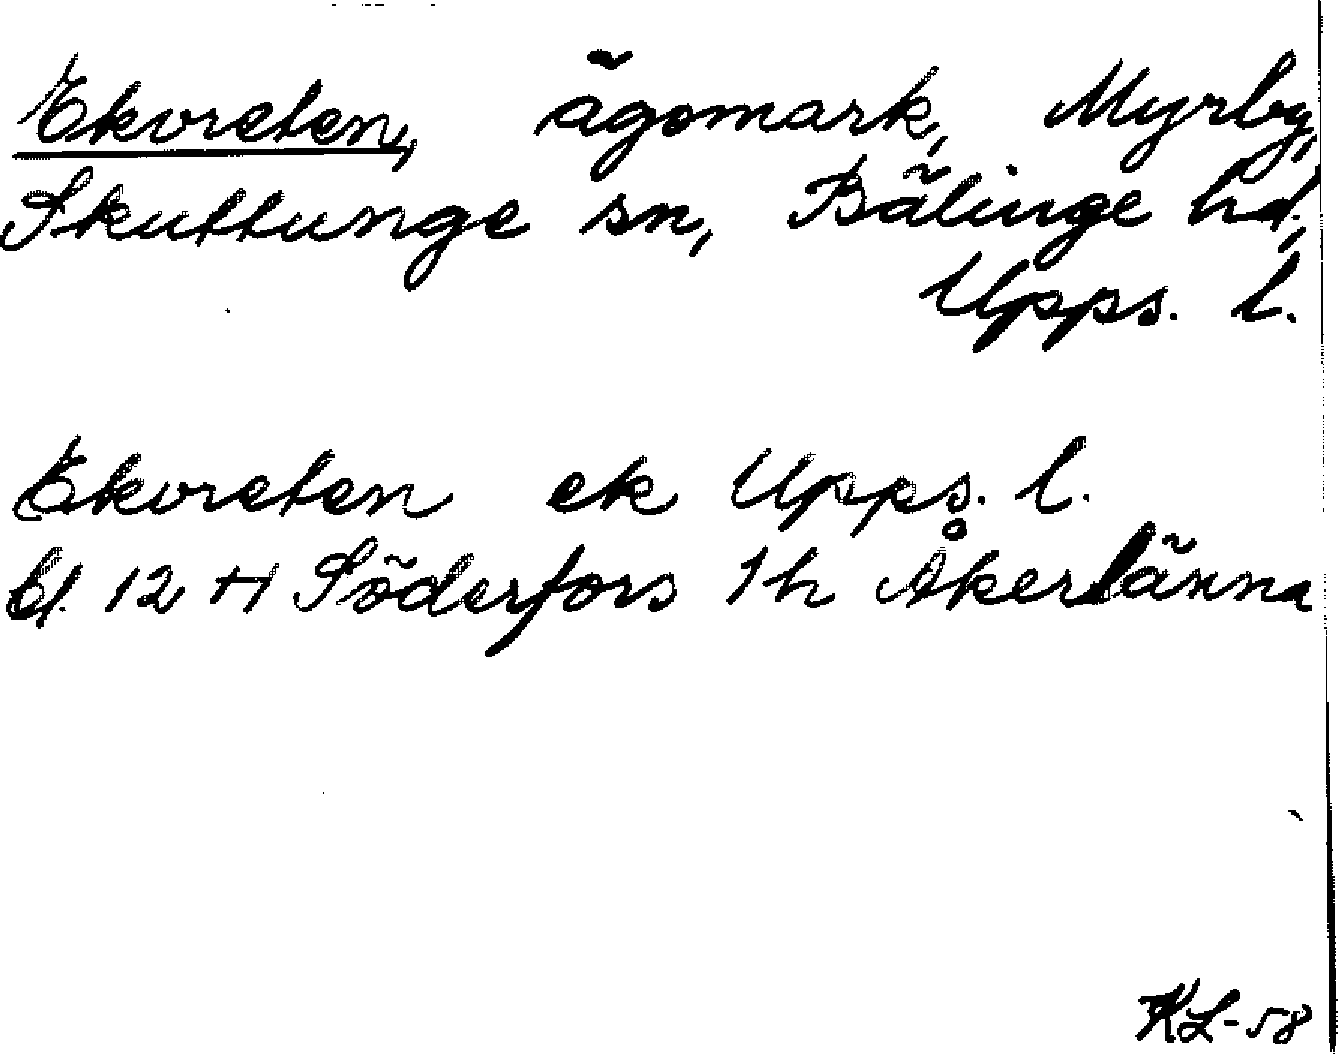 Ekvreten, ägomark, Myrby,
Skuttunge sn, Bälinge hd,
Upps. l.
Ekvreten ek Upps. l.
bl. 12 H Söderfors 1h Åkerlänna
KL-58